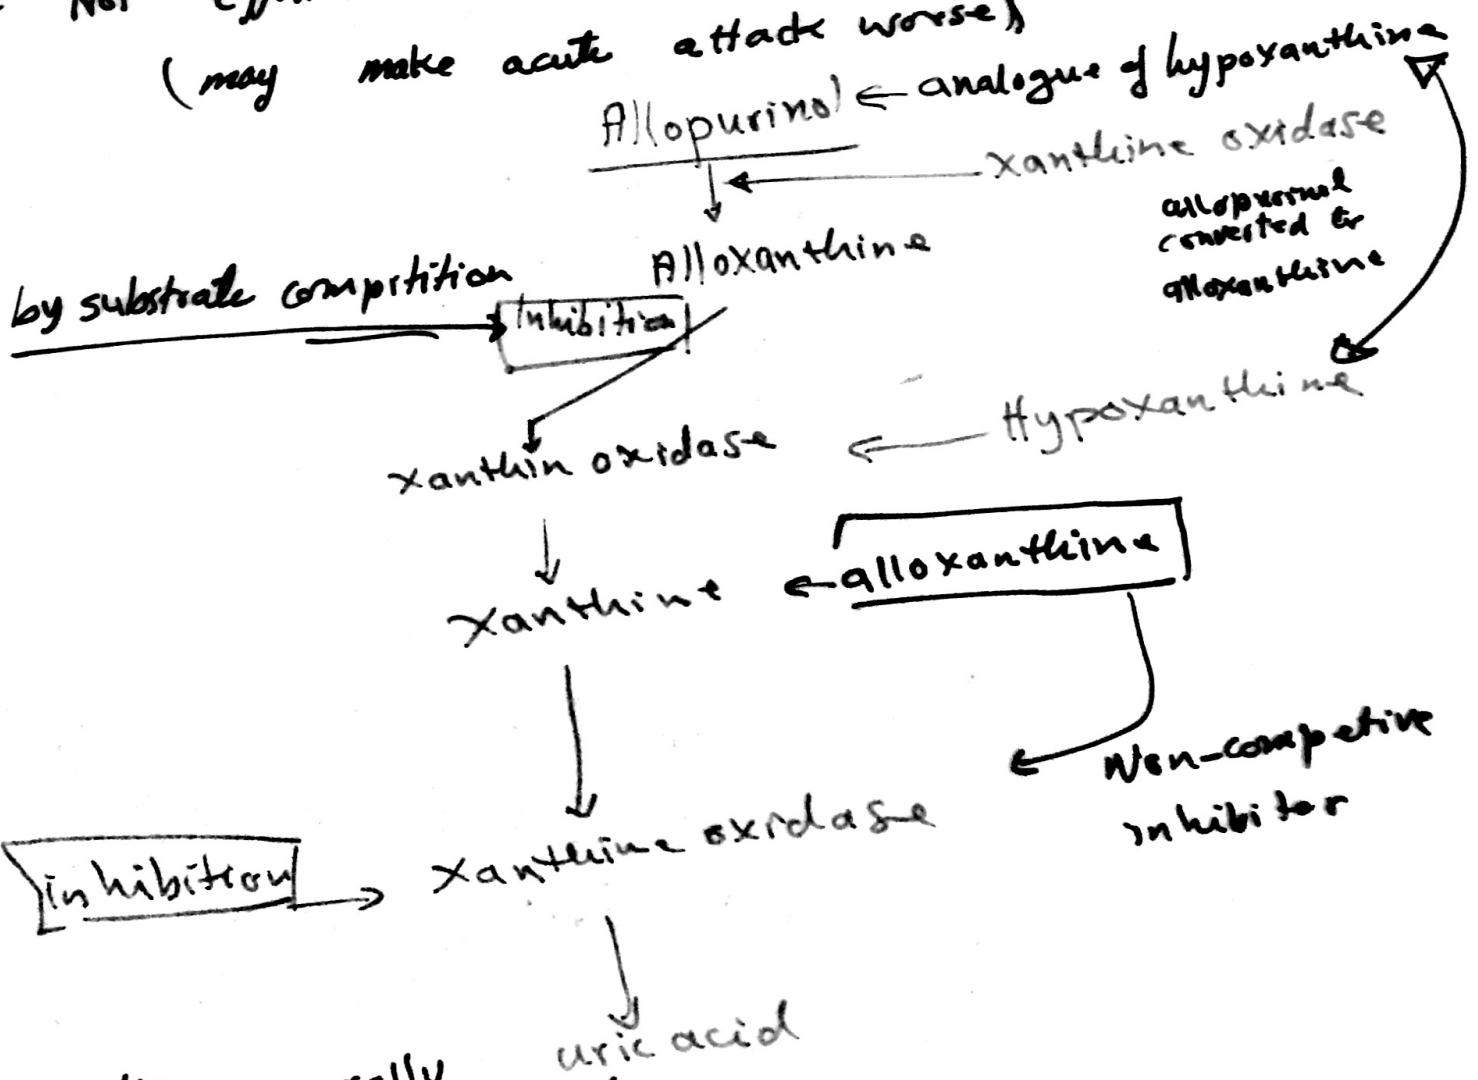 Not
(may make acute attack worse)
Allopurinol ← analogue of hypoxanthine
xanthine oxidase
allopurinol
converted to
alloxanthine
Alloxanthine
by substrate compitition
Inhibition
Hypoxanthine
Xanthin oxidase
Xanthine ← alloxanthine
Non-competive
inhibitor
Xanthine oxidase
inhibition
uric acid